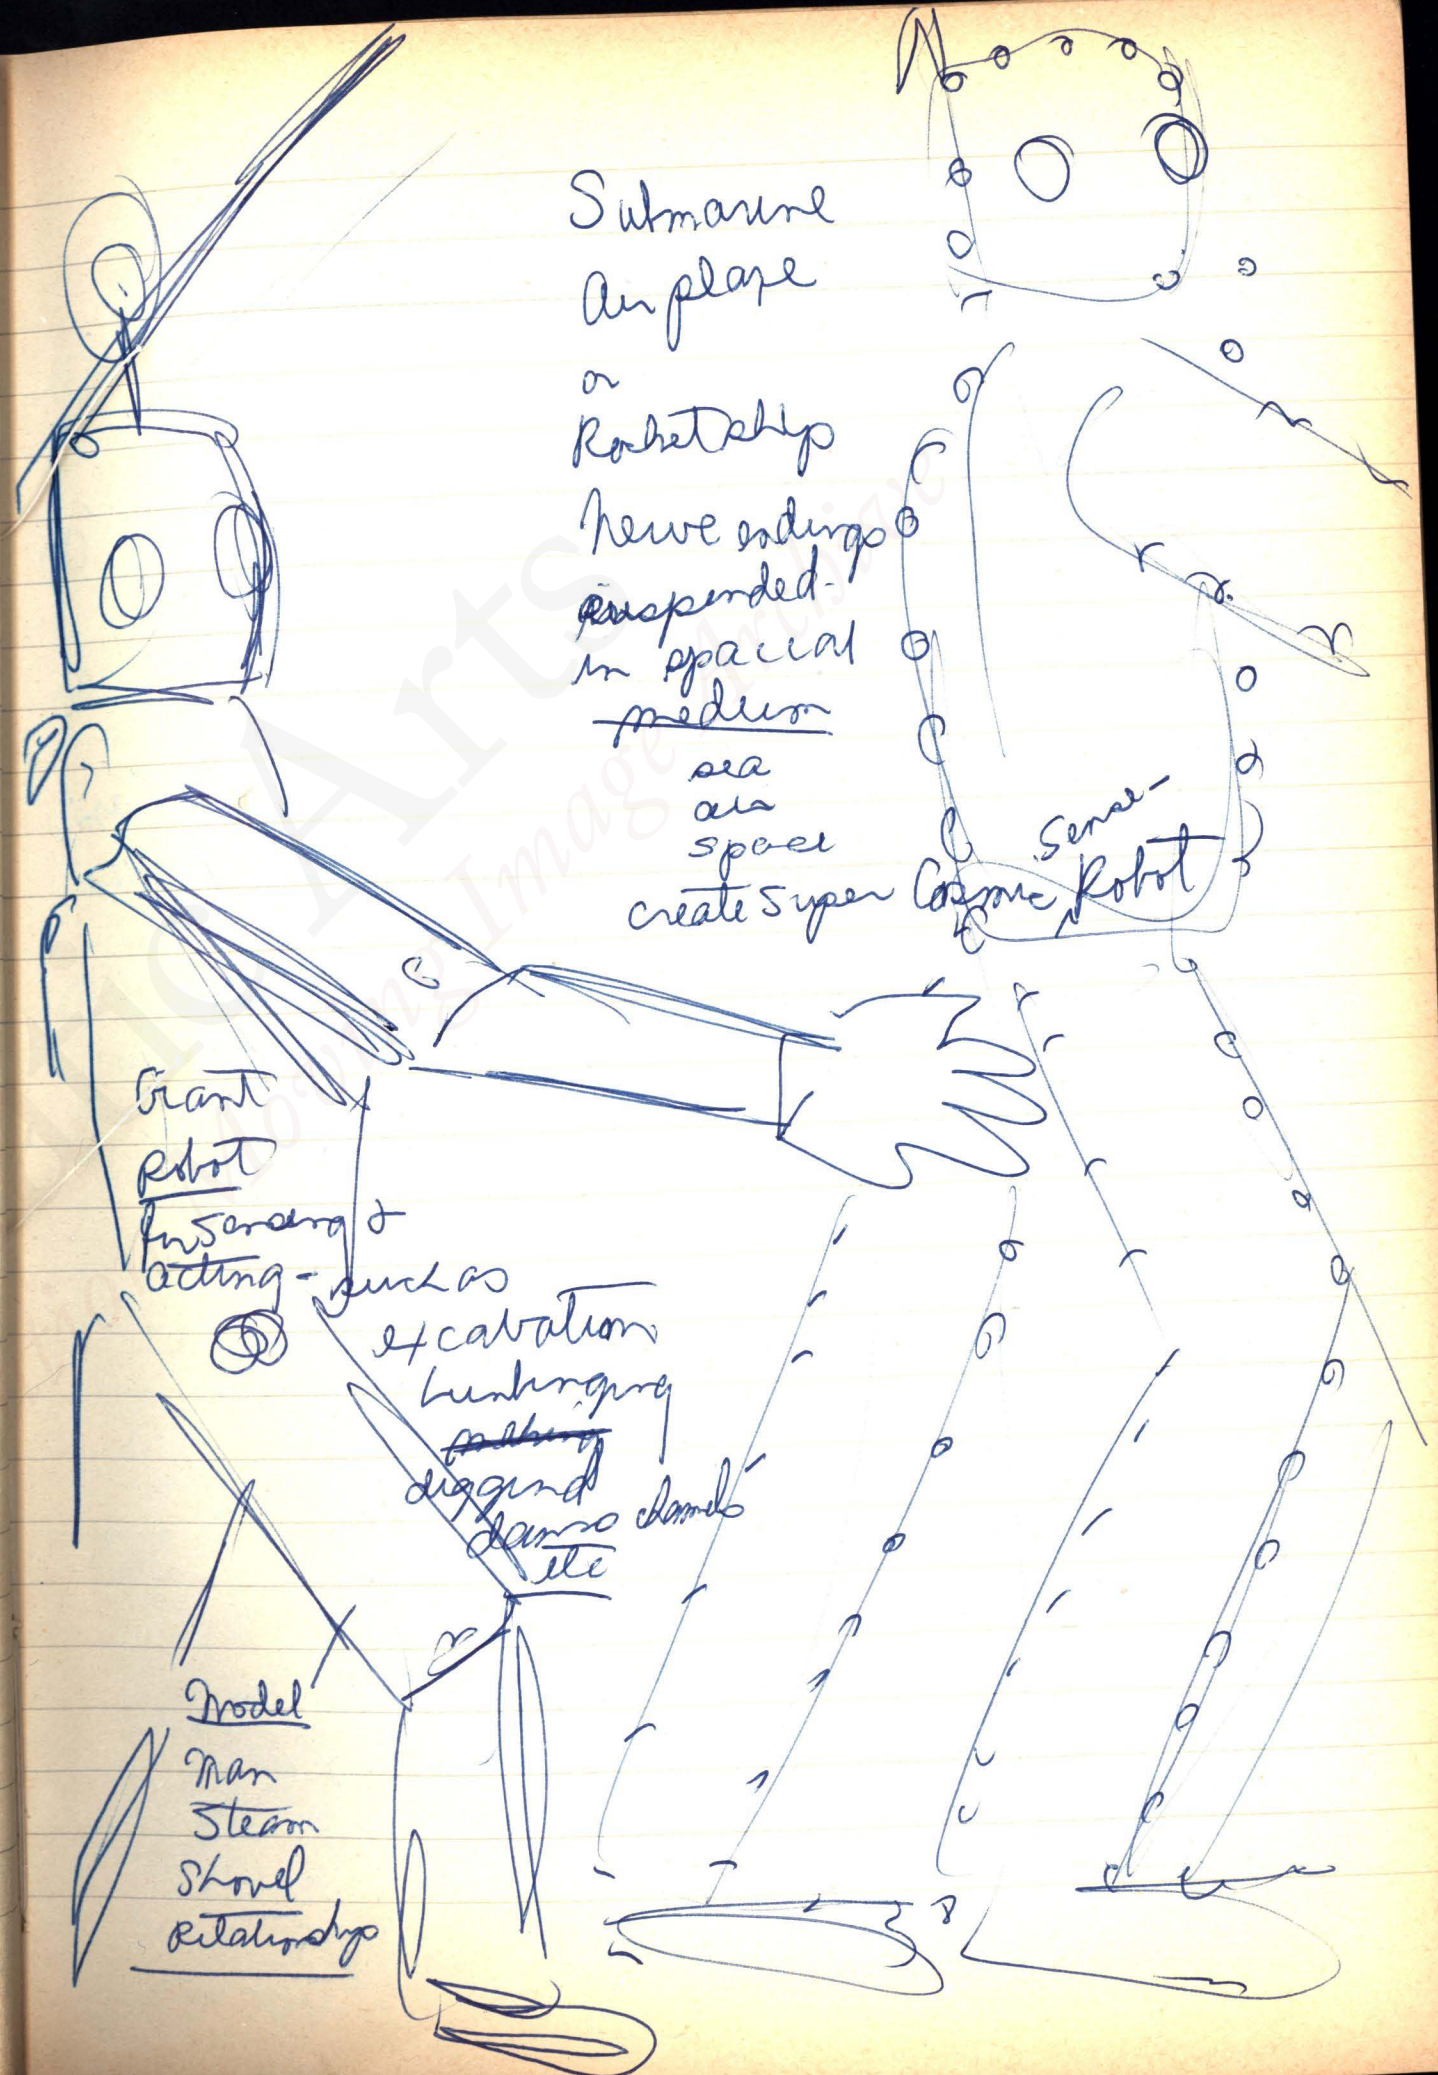 Submarine
Airplane
or
Rocketship
Nerve endings
suspended
in spacial
medium
sea
air
space
create Super Cosmic Sense-Robot
Giant
Robot
for Sensing &
acting - such as
excavation
digging
dams channels
etc
Model
Man
Steam
Shovel
Relationships
Arts
Moving Image Archive